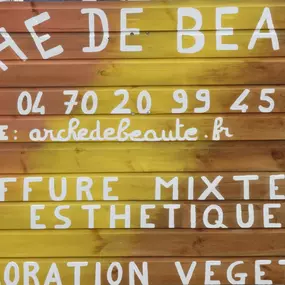 HE DE BEA
04 70 20 99 45
E: archedebeaute.fr
FFURE MIXTE
ESTHETIQUE
ORATION VEGET